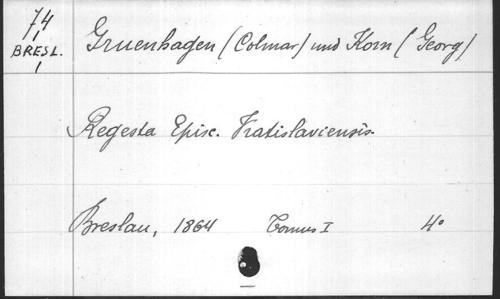 74
BRESL.
1
Gruenhagen (Colmar) und Korn (Georg)
Regesta Episc. Vratislaviensis.
Breslau, 1864 Tomus I 4°